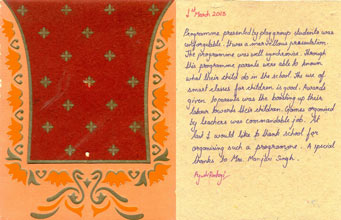 1st March 2013
Programme presented by play group students was
unforgetable. It was a marvellous presentation.
The programme was well synchronise. Through
this programme parents were able to know
what their child do in the school. The use of
smart classes for children is good. Awards
given to parents was the boosting up their
labour towards their children. Games organised
by teachers was commandable job. At
last I would like to thank school for
organising such a programme. A special
thanks to Mrs. Manjari Singh.